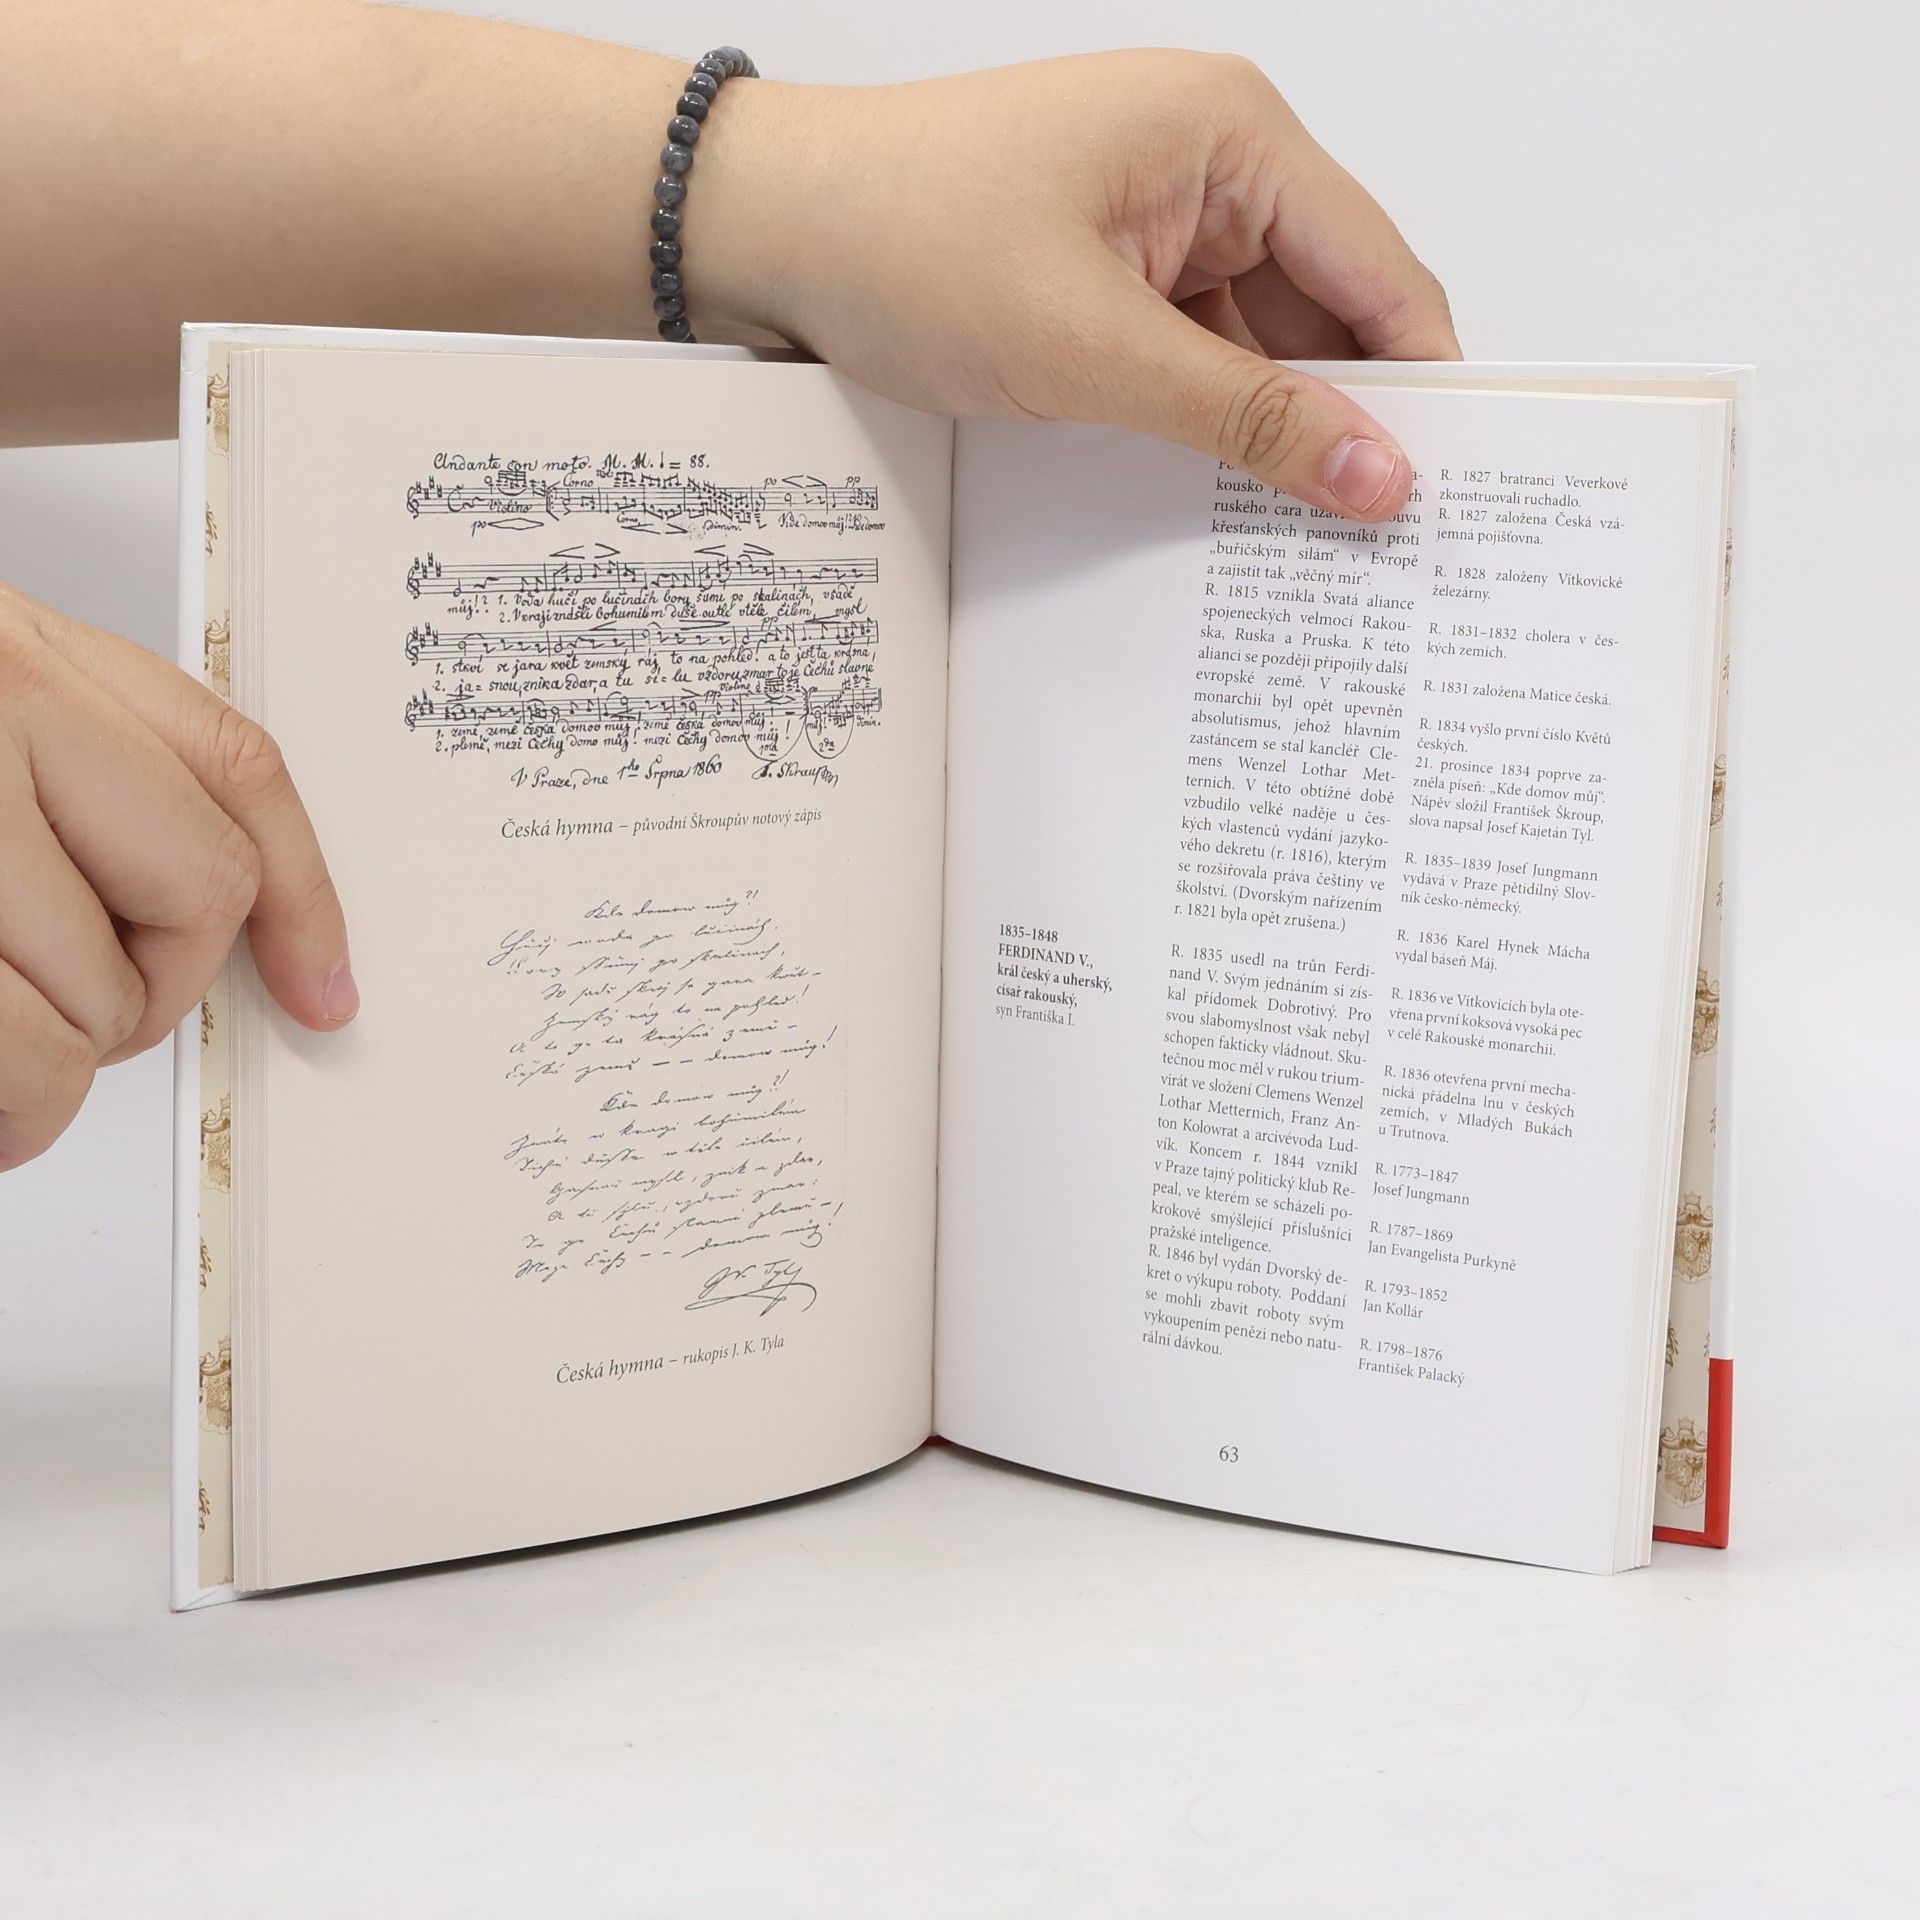 Andante con moto. M. M. ♩ = 88.
Corno
Violino
po
pp
Corno
dimin.
Kde domov můj!
po
můj!? 1. Voda hučí po lučinách bory šumí po skalinách, vsádě
2. V kraji znášli bohumilém duše outlé vtěle čilém, mysl
pp
1. stkví se jara květ zemský ráj to na pohled! a to jest ta krásná,
2. ja = snou, znika zdar, a tu sí = lu vzdoru zmar to je Čechů slavné
pp
Violino
1. země, země česká domov můj! země česká domov můj!
2. plémě, mezi Čechy domo můj! mezi Čechy domov můj!
dimin.
1ma
2da
V Praze, dne 1ho Srpna 1860
F. Škroup
Česká hymna – původní Škroupův notový zápis
Kde domow můg?!
Hučj woda po lučinách,
Bory ssumj po skalinách,
W sadě stkwj se gara kwět –
Zemský rág to na pohled!
A to ge ta krásná země –
Česká země – – domow můg!
Kde domow můg?!
Znáte w kragi bohumilém
Tiché dusse w těle čilém,
Gasnau mysl, znik a zdar,
A tu sjlu, wzdoru zmar:
To ge Čechů slawné plémě –
Mezi Čechy – – domow můg!
J. K. Tyl
Česká hymna – rukopis J. K. Tyla
kousko
ruského cara
křesťanských panovníků proti
„buřičským silám“ v Evropě
a zajistit tak „věčný mír“.
R. 1815 vznikla Svatá aliance
spojeneckých velmocí Rakou-
ska, Ruska a Pruska. K této
alianci se později připojily další
evropské země. V rakouské
monarchii byl opět upevněn
absolutismus, jehož hlavním
zastáncem se stal kancléř Cle-
mens Wenzel Lothar Met-
ternich. V této obtížné době
vzbudilo velké naděje u čes-
kých vlastenců vydání jazyko-
vého dekretu (r. 1816), kterým
se rozšiřovala práva češtiny ve
školství. (Dvorským nařízením
r. 1821 byla opět zrušena.)
1835–1848
FERDINAND V.,
král český a uherský,
císař rakouský,
syn Františka I.
R. 1835 usedl na trůn Ferdi-
nand V. Svým jednáním si zís-
kal přídomek Dobrotivý. Pro
svou slabomyslnost však nebyl
schopen fakticky vládnout. Sku-
tečnou moc měl v rukou trium-
virát ve složení Clemens Wenzel
Lothar Metternich, Franz An-
ton Kolowrat a arcivévoda Lud-
vík. Koncem r. 1844 vznikl
v Praze tajný politický klub Re-
peal, ve kterém se scházeli po-
krokově smýšlející příslušníci
pražské inteligence.
R. 1846 byl vydán Dvorský de-
kret o výkupu roboty. Poddaní
se mohli zbavit roboty svým
vykoupením penězi nebo natu-
rální dávkou.
R. 1827 bratranci Veverkové
zkonstruovali ruchadlo.
R. 1827 založena Česká vzá-
jemná pojišťovna.
R. 1828 založeny Vítkovické
železárny.
R. 1831–1832 cholera v čes-
kých zemích.
R. 1831 založena Matice česká.
R. 1834 vyšlo první číslo Květů
českých.
21. prosince 1834 poprve za-
zněla píseň: „Kde domov můj“.
Nápěv složil František Škroup,
slova napsal Josef Kajetán Tyl.
R. 1835–1839 Josef Jungmann
vydává v Praze pětidílný Slov-
ník česko-německý.
R. 1836 Karel Hynek Mácha
vydal báseň Máj.
R. 1836 ve Vítkovicích byla ote-
vřena první koksová vysoká pec
v celé Rakouské monarchii.
R. 1836 otevřena první mecha-
nická přádelna lnu v českých
zemích, v Mladých Bukách
u Trutnova.
R. 1773–1847
Josef Jungmann
R. 1787–1869
Jan Evangelista Purkyně
R. 1793–1852
Jan Kollár
R. 1798–1876
František Palacký
63